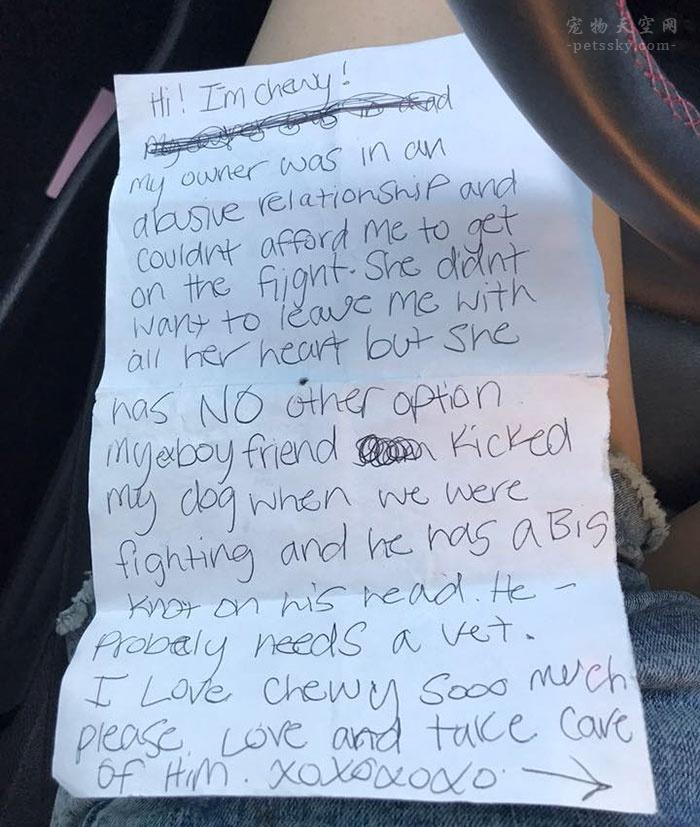 宠物天空网
-petssky.com-
Hi! I'm chewy!
my owner was in an
abusive relationship and
couldnt afford me to get
on the flight. She didnt
want to leave me with
all her heart but she
has NO other option.
my exboyfriend kicked
my dog when we were
fighting and he has a Big
knot on his head. He -
probely needs a vet.
I Love chewy sooo much
please Love and take care
of Him. xoxoxoxo. →